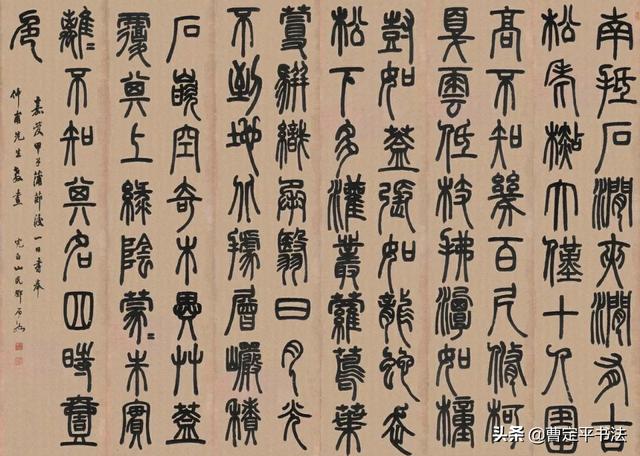 南抵石澗夾澗有古
松老檆大僅十人圍
高不知幾百尺脩柯
戛雲低枝拂潭如橦
豎如蓋張如龍蛇走
松下多灌叢蘿蔦葉
蔓駢織承翳日月光
不到地北據層巖積
石嵌空奇木異艸蓋
覆其上綠陰蒙〻朱實
離〻不知其名四時壹
色
嘉慶甲子蒲節後一日書奉
仲甫先生教
完白山民鄧石如
头条 @曹定平书法